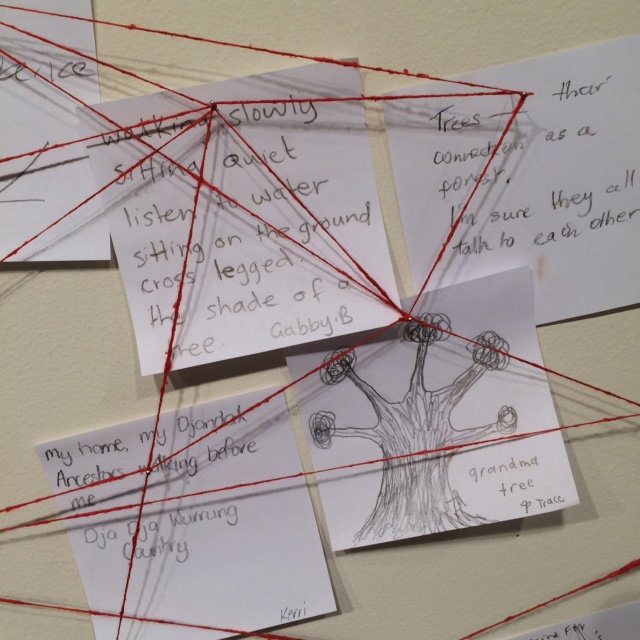 walking slowly
sitting quiet
listen to water
sitting on the ground
cross legged.
the shade of a
tree. Gabby.B
Trees — their
connection as a
forest.
I'm sure they all
talk to each other
my home, my Djandak
Ancestors walking before
me
Dja Dja Wurrung
Country
Kerri
grandma
tree
Trace